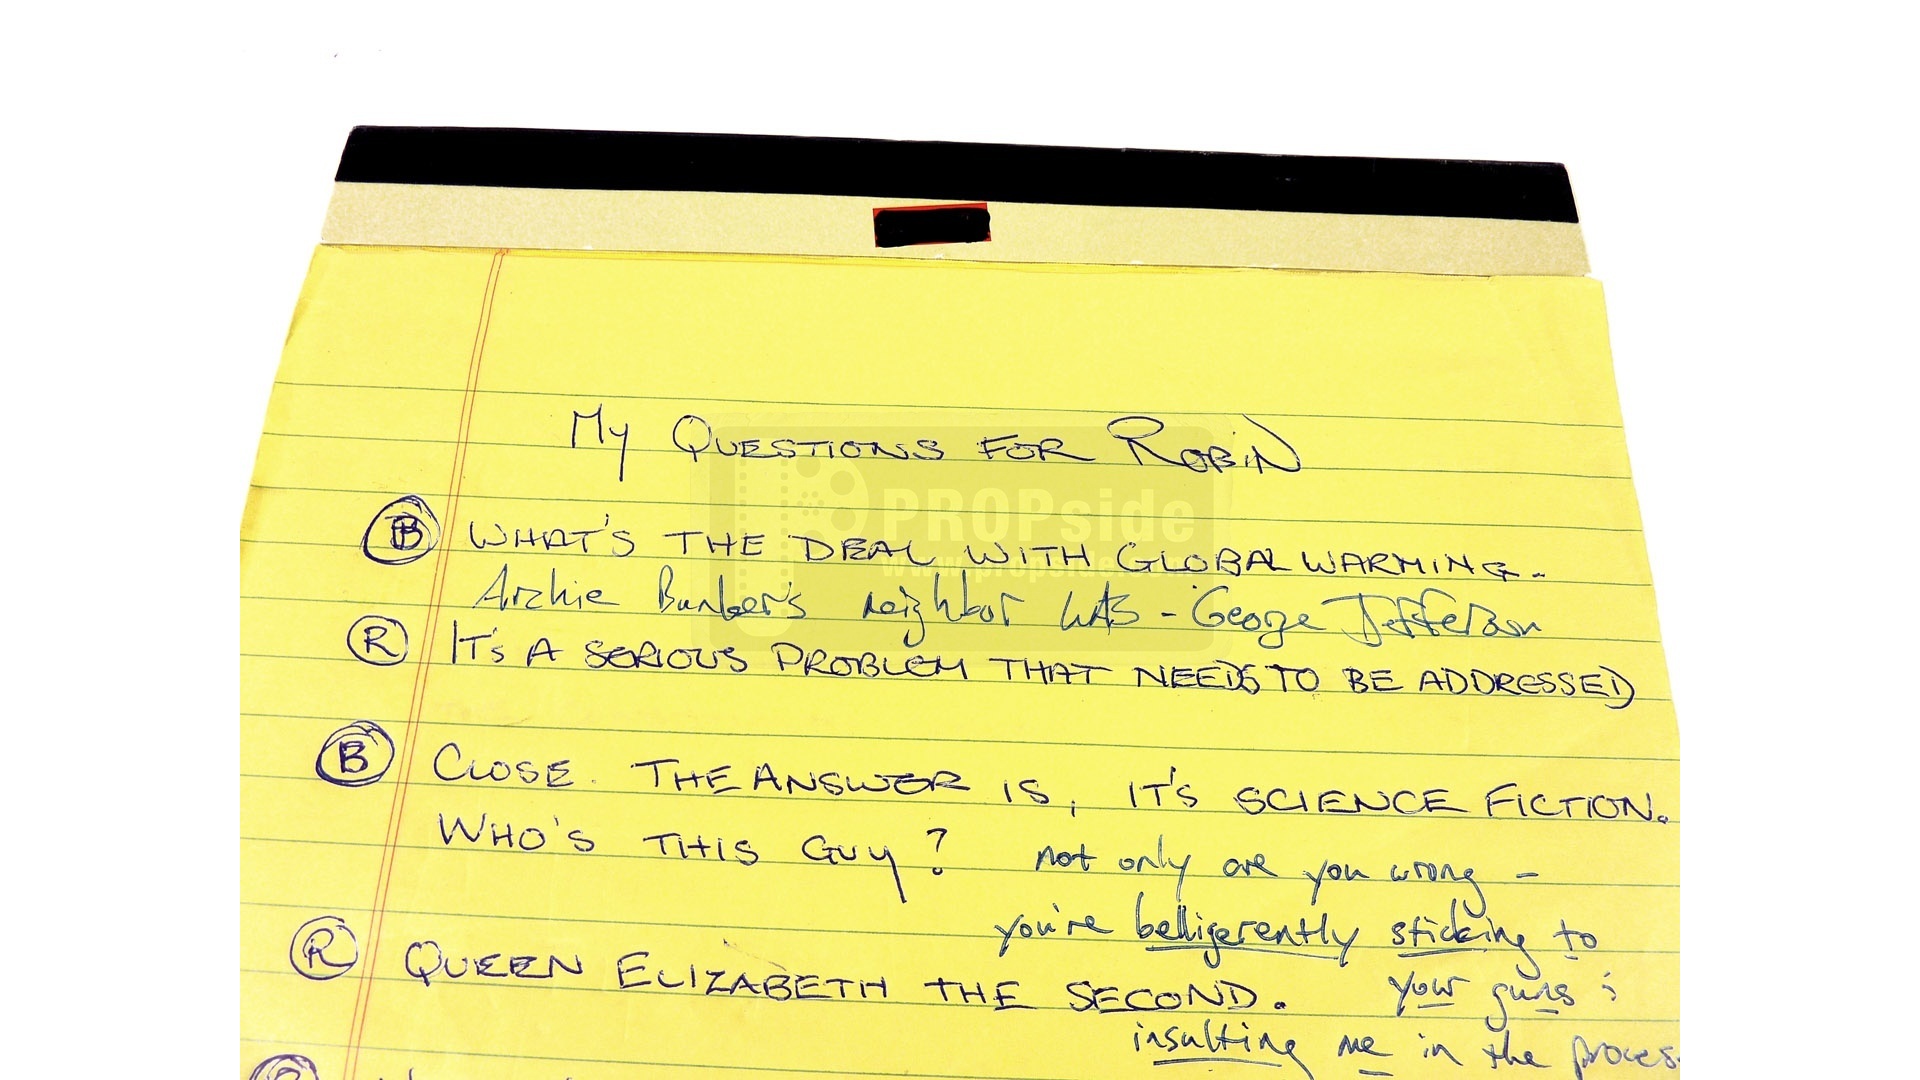 My QUESTIONS FOR ROBIN
B WHAT'S THE DEAL WITH GLOBAL WARMING.
Archie Bunker's neighbor was - George Jefferson
R IT'S A SERIOUS PROBLEM THAT NEEDS TO BE ADDRESSED
B CLOSE. THE ANSWER IS, IT'S SCIENCE FICTION.
WHO'S THIS GUY?
not only are you wrong -
you're belligerently sticking to
R QUEEN ELIZABETH THE SECOND.
your guns &
insulting me in the proces
PROPside
www.propside.com